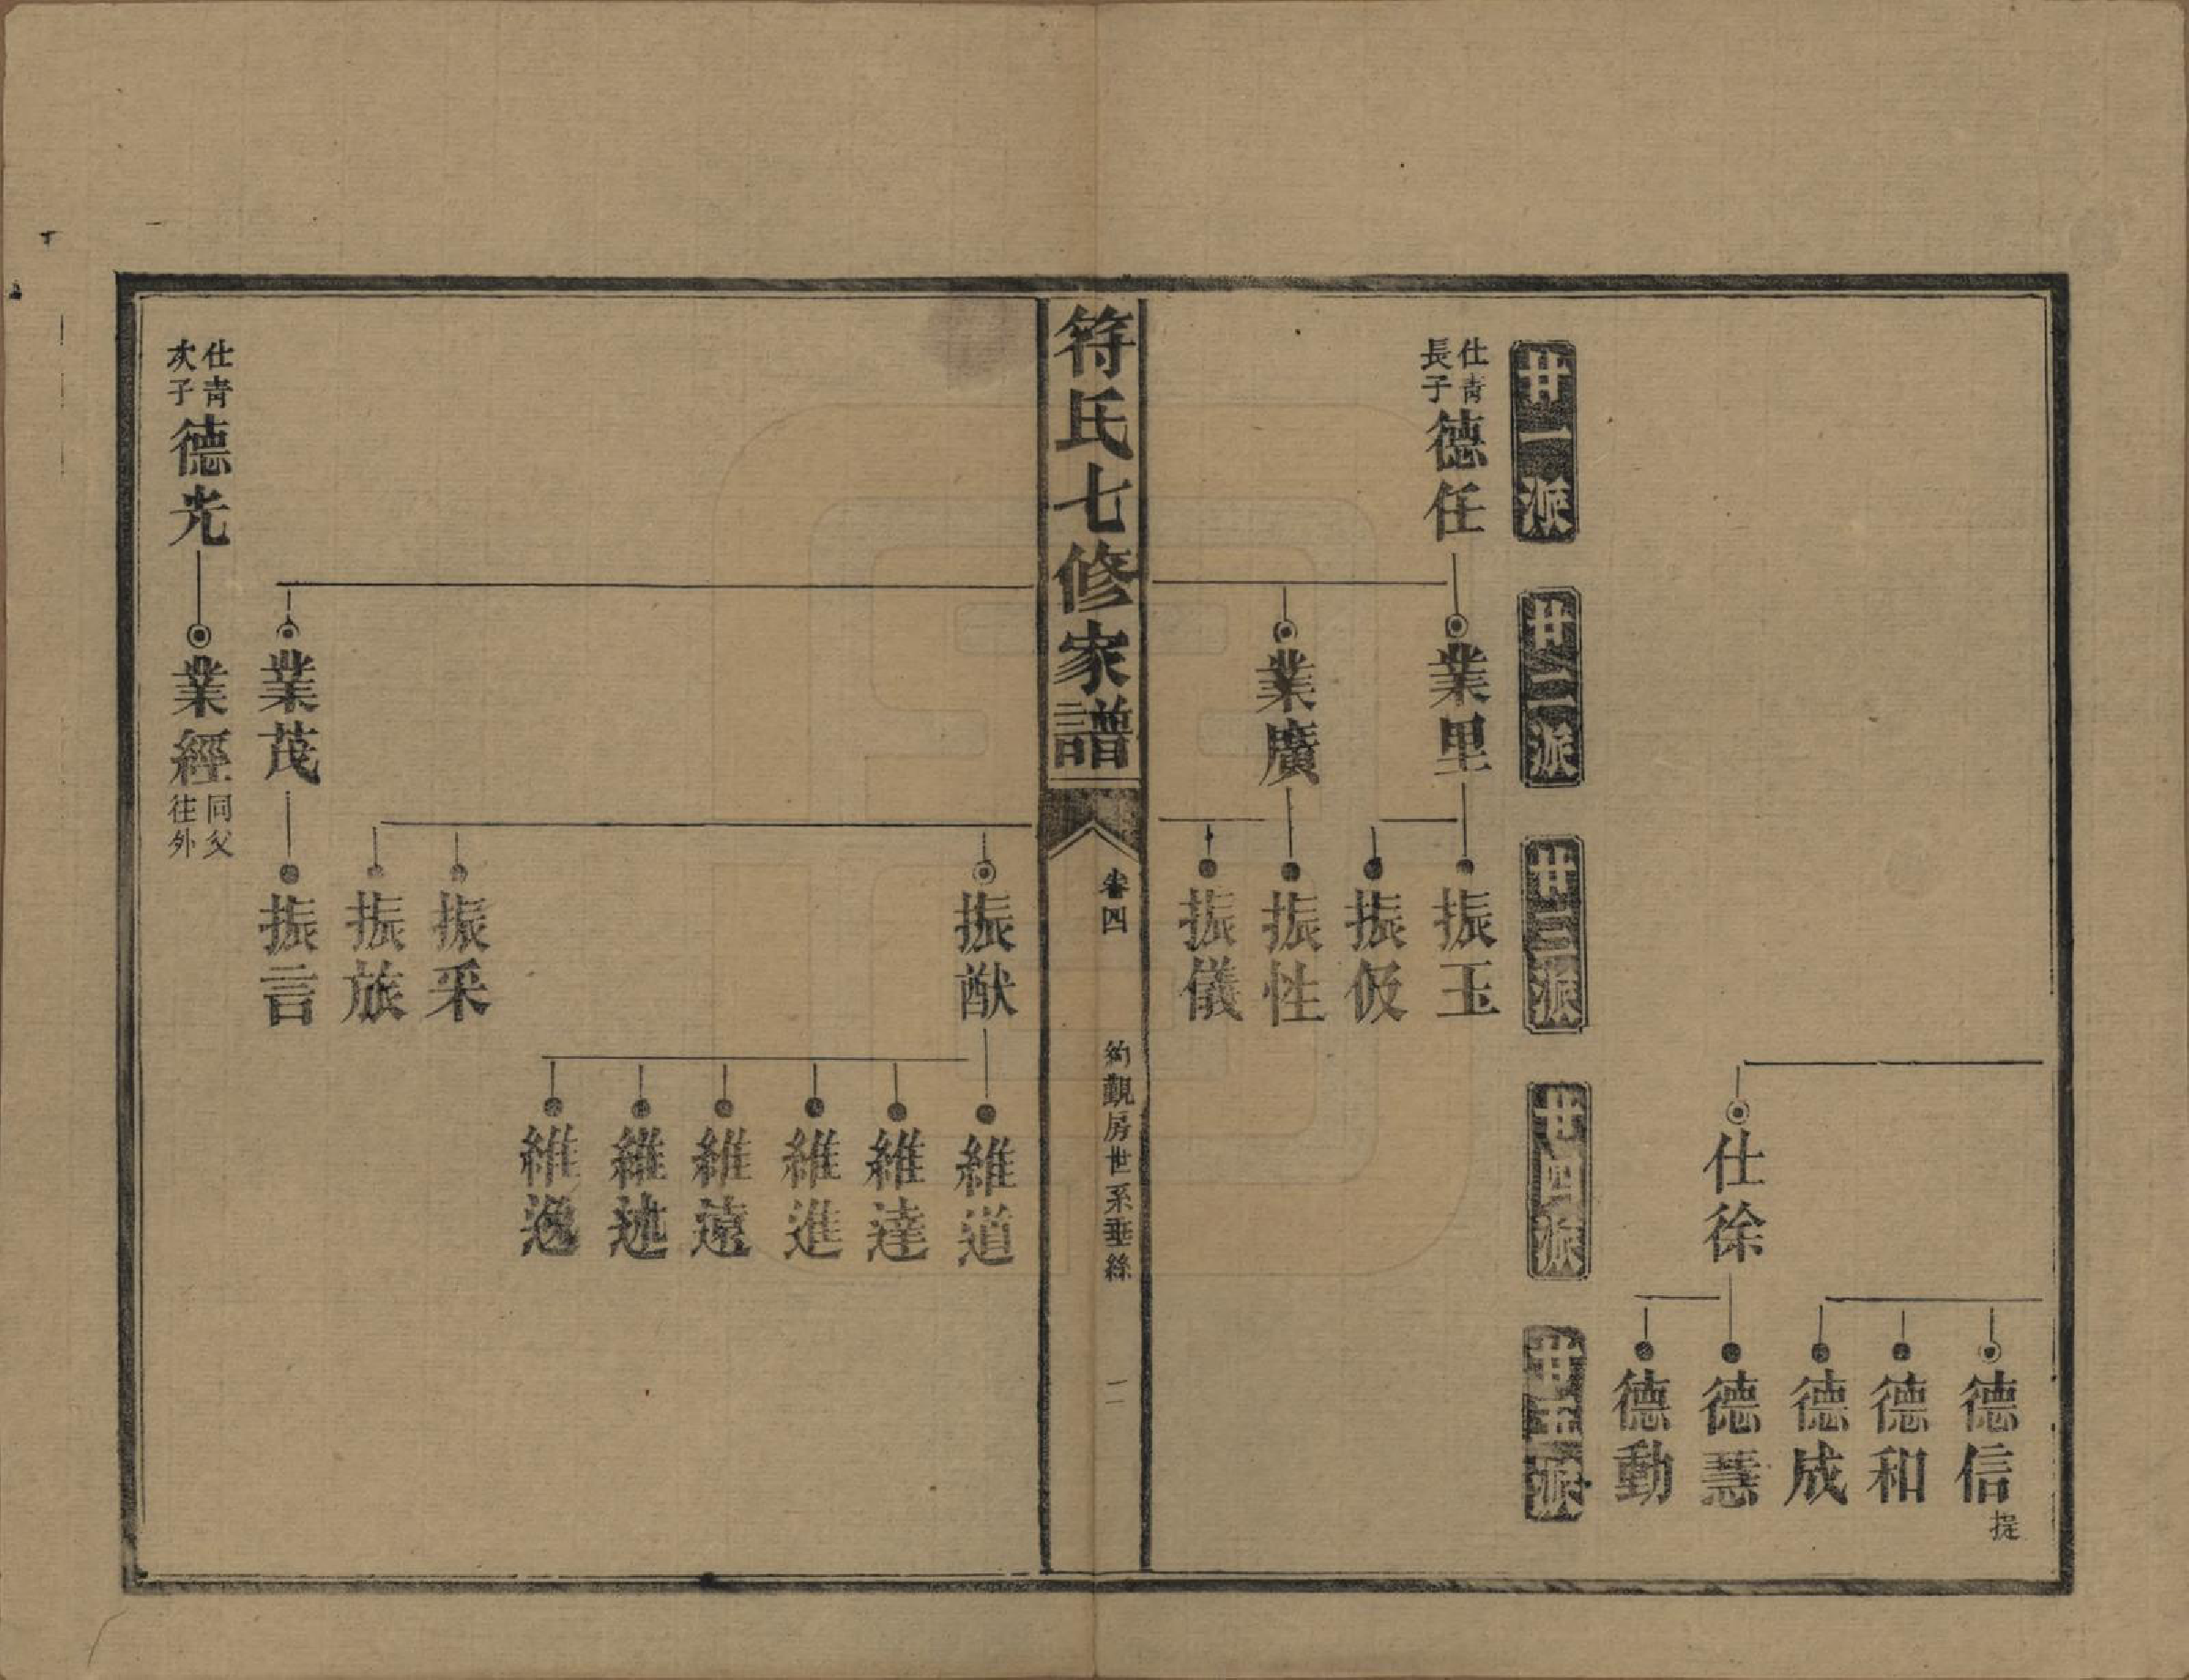 德信 提
德和
德成
仕徐
德慧
德動
廿一派
廿二派
廿三派
廿四派
廿五派
仕青長子
德任
業里
振玉
振伋
業廣
振性
振儀
符氏七修家譜
卷四
約觀房世系垂絲
二
振猷
維道
維達
維進
維遠
維述
維逸
振采
振旅
業茂
振言
仕青次子
德光
業經 同父往外